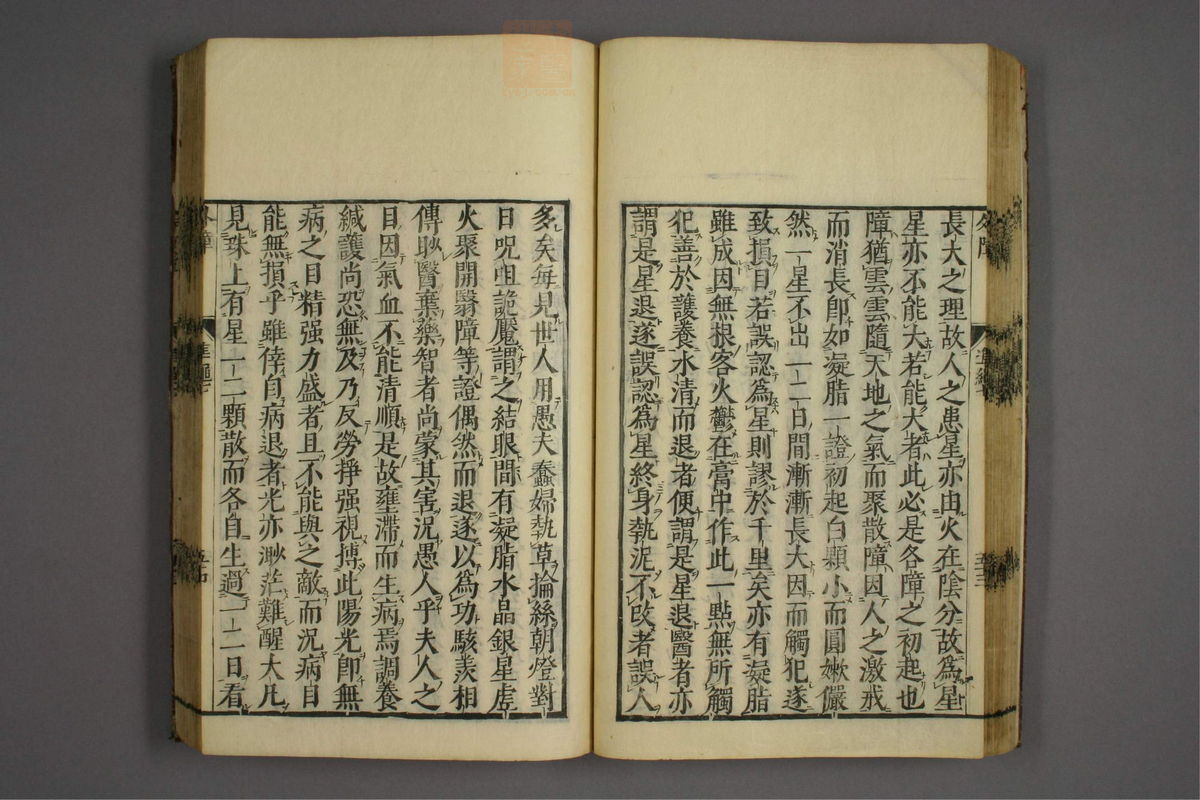 長大之理故人之患星亦由火在陰分故為星
星亦不能大若能大者此必是各障之初起也
障猶雲雲隨天地之氣而聚散障因人之激戒
而消長即如凝脂一證初起白顆小而圓嫰儼
然一星不出一二日間漸漸長大因而觸犯遂
致損目若誤認為星則謬於千里矣亦有凝脂
雖成因無根客火鬱在膏中作此一點無所觸
犯善於護養水清而退者便謂是星退醫者亦
謂是星退遂誤認為星終身執泥不改者誤人
多矣每見世人用愚夫蠢婦執草掄絲朝燈對
日咒咀詭魘謂之結眼間有凝脂水晶銀星虗
火聚開翳障等證偶然而退遂以為功駭羨相
傳耿醫棄藥智者尚蒙其害況愚人乎夫人之
目因氣血不能清順是故壅滯而生病焉調養
緘護尚恐無及乃反勞掙强視搏此陽光即無
病之目精强力盛者且不能與之敵而況病目
能無損乎雖倖自病退者光亦渺茫難醒大凡
見珠上有星一二顆散而各自生過一二日看
外障